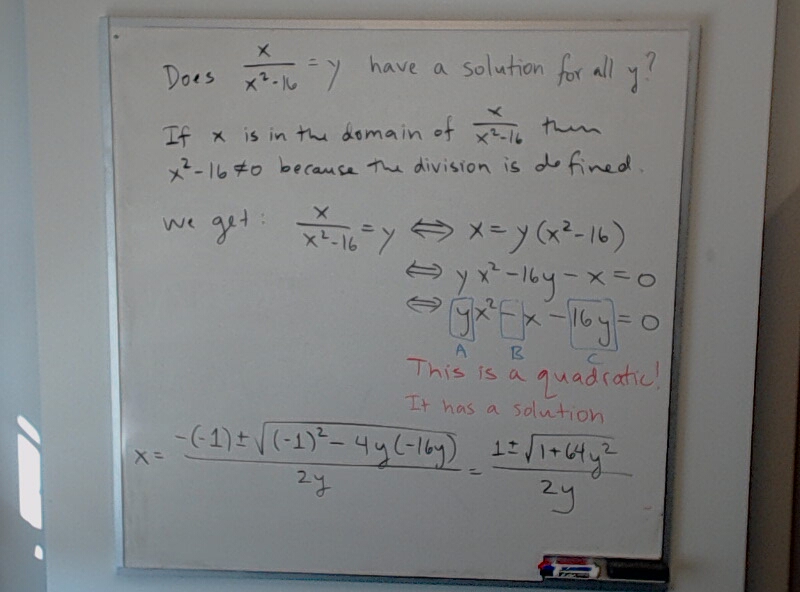 Does x/(x²-16) = y have a solution for all y?
If x is in the domain of x/(x²-16) then
x²-16≠0 because the division is defined.
We get: x/(x²-16) = y ⟺ x = y(x²-16)
⟺ yx²-16y-x=0
⟺ yx²-x-16y=0
A B C
This is a quadratic!
It has a solution
x = (-(-1)±√((-1)²-4y(-16y)))/(2y) = (1±√(1+64y²))/(2y)